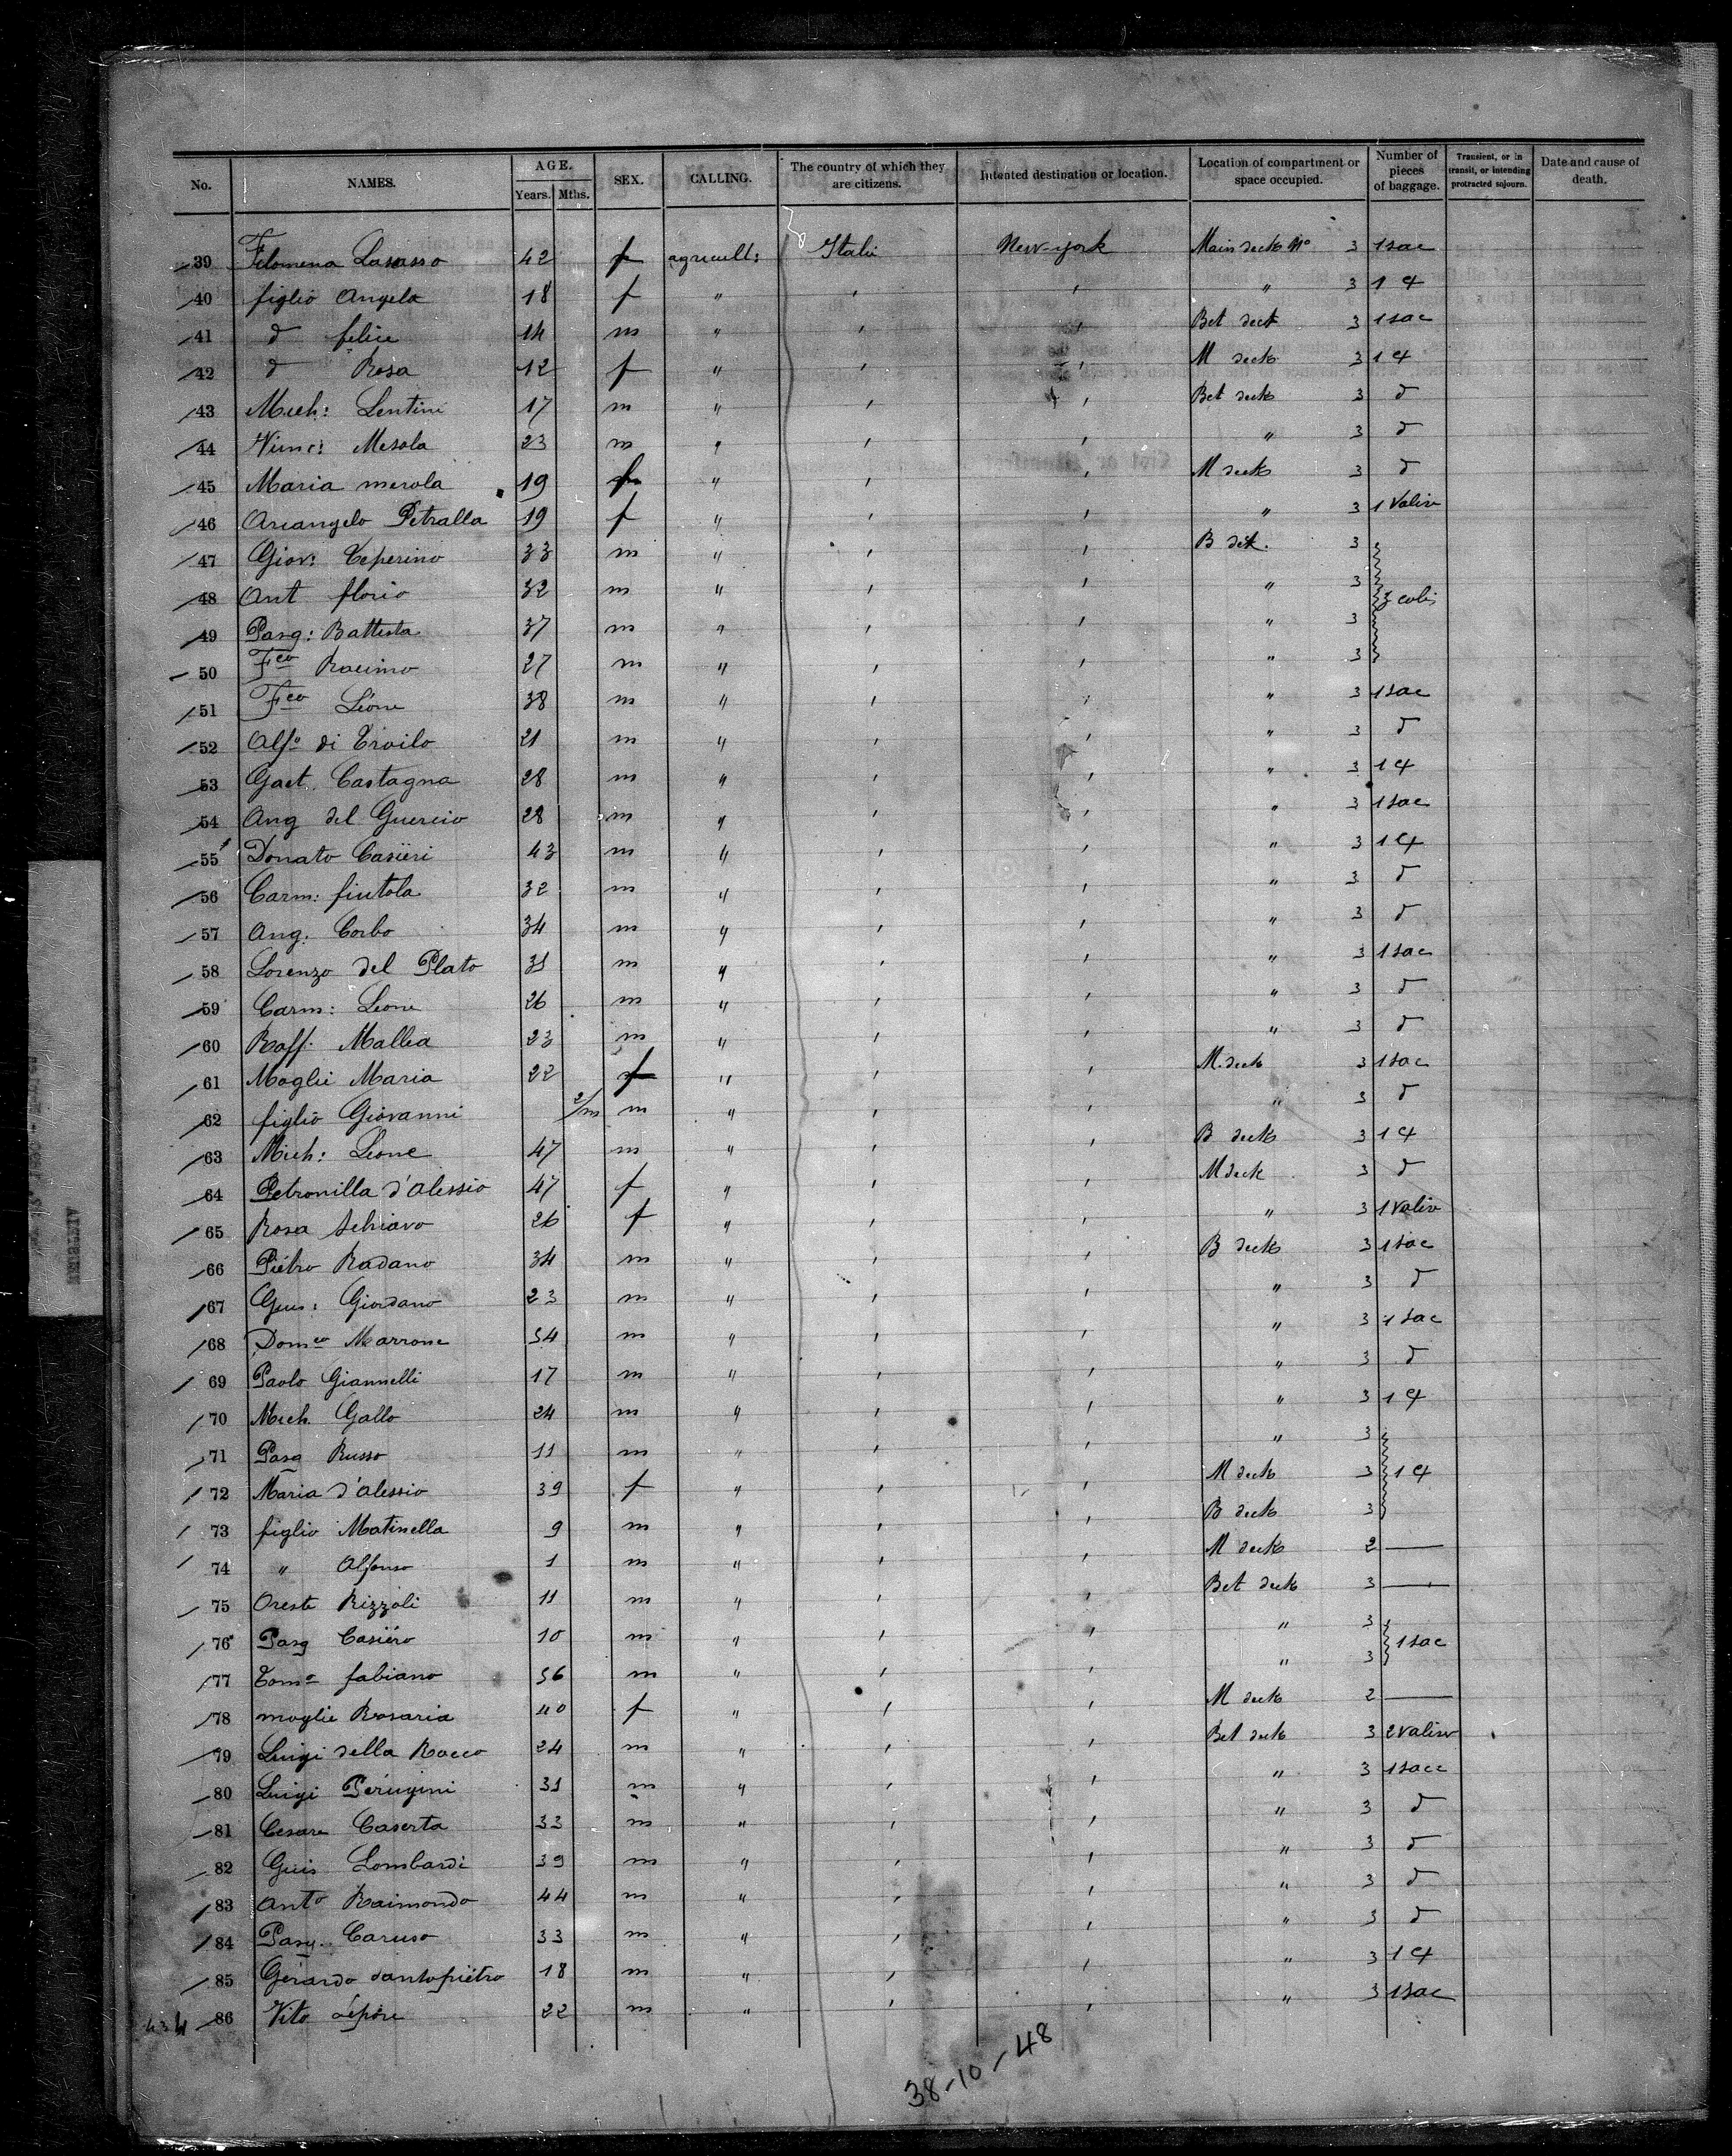 No. NAMES. AGE. Years. Mths. SEX. CALLING. The country of which they are citizens. Intented destination or location. Location of compartment or space occupied. Number of pieces of baggage. Transient, or in transit, or intending protracted sojourn. Date and cause of death.
39 Filomena Lasasso 42 f agricult: Italie New-york Main deck No 3 1 sac
40 figlio Angela 18 f " " " " 3 1 4
41 d felice 14 m " " " Bet deck 3 1 sac
42 d Rosa 12 f " " " M deck 3 1 4
43 Mich: Lentini 17 m " " " Bet deck 3 d
44 Mesola 23 m " " " " 3 d
45 Maria merola 19 f " " " M deck 3 d
46 Arcangelo Petralla 19 f " " " " 3 1 Valise
47 Giov: Peperino 33 m " " " B dek. 3
48 Ant florio 32 m " " " " 3 3 colis
49 Pasq: Battista 37 m " " " " 3
50 Fco Racimo 27 m " " " " 3
51 Fco Léone 38 m " " " " 3 1 sac
52 Alfo di Troilo 21 m " " " " 3 d
53 Gaet. Castagna 28 m " " " " 3 1 4
54 Ang del Guercio 28 m " " " " 3 1 sac
55 Donato Casiëri 43 m " " " " 3 1 4
56 Carm: fiutola 32 m " " " " 3 d
57 Ang. Corbo 34 m " " " " 3 d
58 Lorenzo del Plato 31 m " " " " 3 1 sac
59 Carm: Leone 26 m " " " " 3 d
60 Raff. Mallea 23 m " " " " 3 d
61 Moglie Maria 22 f " " " M. deck 3 1 sac
62 figlio Giovanni 2/m m " " " " 3 d
63 Mich: Leone 47 m " " " B deck 3 1 4
64 Petronilla d'Alessio 47 f " " " M deck 3 d
65 Rosa Schiavo 26 f " " " " 3 1 valise
66 Piétro Radano 34 m " " " B deck 3 1 sac
67 Gius: Giordano 23 m " " " " 3 d
68 Domco Marrone 34 m " " " " 3 1 sac
69 Paolo Giannelli 17 m " " " " 3 d
70 Mich. Gallo 24 m " " " " 3 1 4
71 Pasq Russo 11 m " " " " 3
72 Maria d'alessio 39 f " " " M deck 3 1 4
73 figlio Matinella 9 m " " " B deck 3
74 " Alfonso 1 m " " " M deck 2 —
75 Oreste Rizzoli 11 m " " " Bet deck 3 —
76 Pasq Casiéro 10 m " " " " 3 1 sac
77 Tomo fabiano 56 m " " " " 3
78 moglie Rosaria 40 f " " " M deck 2 —
79 Luigi della Rocco 24 m " " " Bet deck 3 2 valise
80 Luigi Pérugini 31 m " " " " 3 1 sacc
81 Cesare Caserta 33 m " " " " 3 d
82 Guis Lombardi 39 m " " " " 3 d
83 Anto Raimondo 44 m " " " " 3 d
84 Pasq. Caruso 33 m " " " " 3 d
85 Gérardo Santopiétro 18 m " " " " 3 1 4
86 Vito Lépore 22 m " " " " 3 1 sac
38-10-48